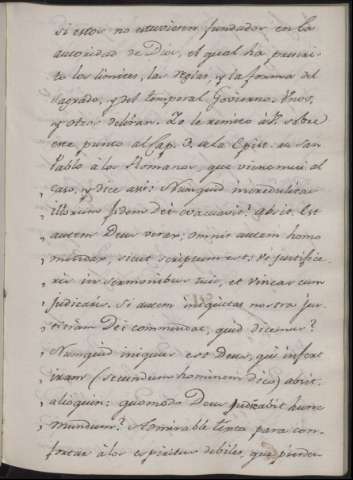 si estos no estuviesen fundados en la
autoridad de Dios, el qual ha prescri-
to los limites, las reglas, y la forma del
Sagrado, y del temporal Govierno. Unos,
y otros deliran. Yo le remito à V. sobre
este punto al Cap. 3. de la Epist. de San
Pablo à los Romanos, que viene mui al
caso, y dice asi: Numquid incredulitas
„ illorum fidem Dei evacuavit? absit. Est
„ autem Deus verax; omnis autem homo
„ mendax, sicut scriptum est: ut justifice-
„ ris in sermonibus tuis, et vincas cum
„ judicaris. Si autem iniquitas nostra jus-
„ titiam Dei commendat, quid dicemus?
„ Numquid iniquus est Deus, qui infert
„ iram (secundum hominem dico) absit.
„ alioquin: quomodo Deus judicabit hunc
„ mundum? Admirable texto para con-
fortar à los espiritus debiles, que pierden